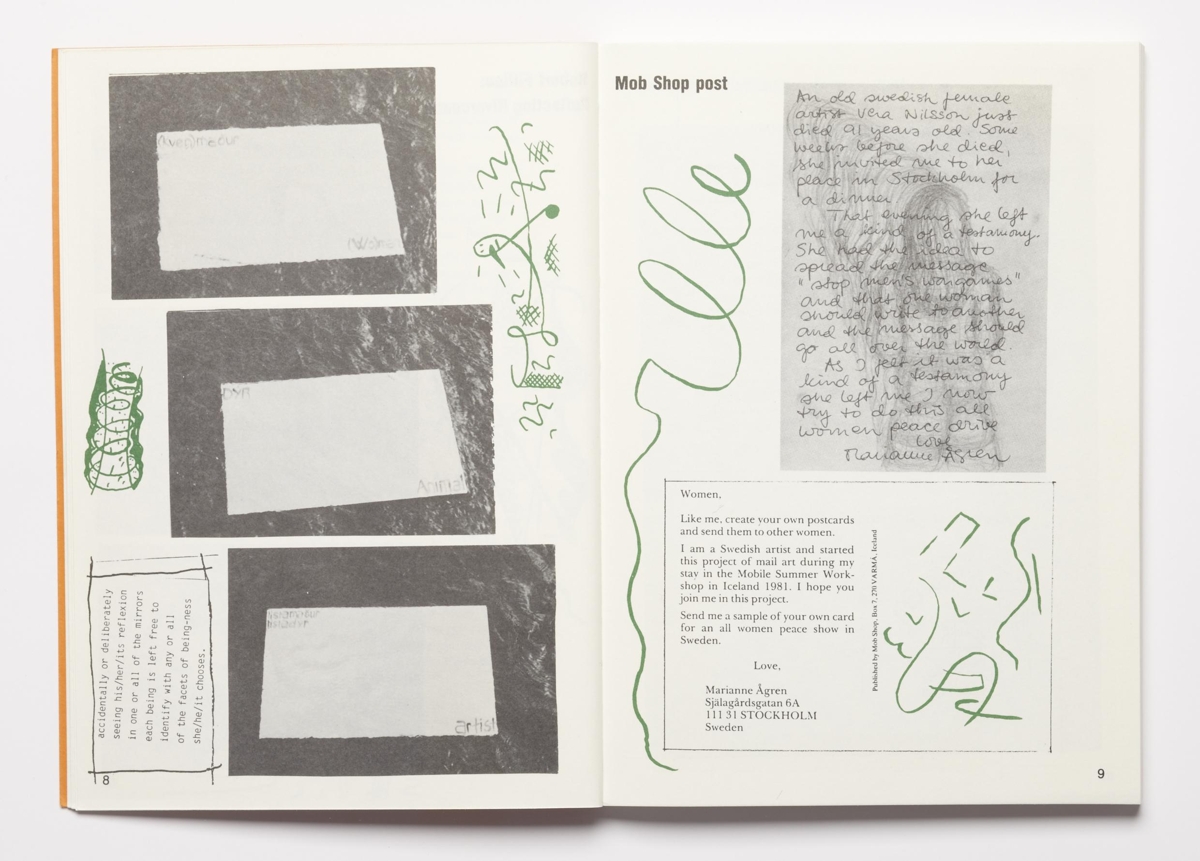 accidentally or deliberately
seeing his/her/its reflexion
in one or all of the mirrors
each being is left free to
identify with any or all
of the facets of being-ness
she/he/it chooses.
artist
8
Mob Shop post
An old swedish female
artist Vera Nilsson just
died 91 years old. Some
weeks before she died,
she invited me to her
place in Stockholm for
a dinner
That evening she left
me a kind of a testamony.
She had the idea to
spread the message
"stop men's wargames"
and that one woman
should write to another
and the message should
go all over the world.
As I felt it was a
kind of a testamony
she left me I now
try to do this all
women peace drive
love
Marianne Ågren
Women,
Like me, create your own postcards
and send them to other women.
I am a Swedish artist and started
this project of mail art during my
stay in the Mobile Summer Work-
shop in Iceland 1981. I hope you
join me in this project.
Send me a sample of your own card
for an all women peace show in
Sweden.
Love,
Marianne Ågren
Själagårdsgatan 6A
111 31 STOCKHOLM
Sweden
Published by Mob Shop, Box 7, 270 VARMA, Iceland
9